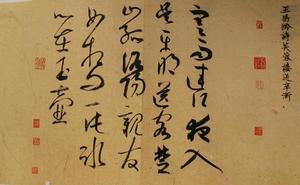 寒雨連江夜入
吳平明送客楚
山孤洛陽親友
如相問一片冰
心在玉壺
王昌齡詩芙蓉樓送辛漸